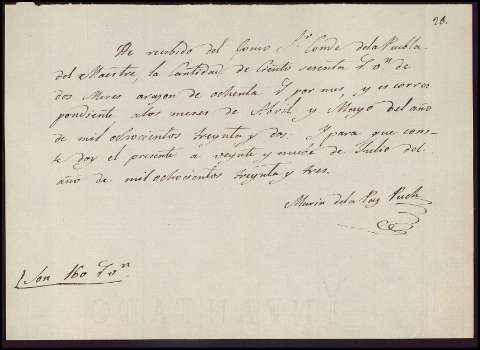 28.
He recibido del Exmo Sr. Conde dela Puebla
del Maestre, la Cantidad de Ciento sesenta rs. vn. de
dos Meses arazon de ochenta rs. por mes, y es corres
pondiente alos meses de Abril y Mayo del año
de mil ochocientos treynta y dos. Y para que cons-
te doy el presente a veynte y nueve de Julio del
año de mil ochocientos treynta y tres.
Maria dela Paz Puch
Son 160 rs. vn.
INFANTADO